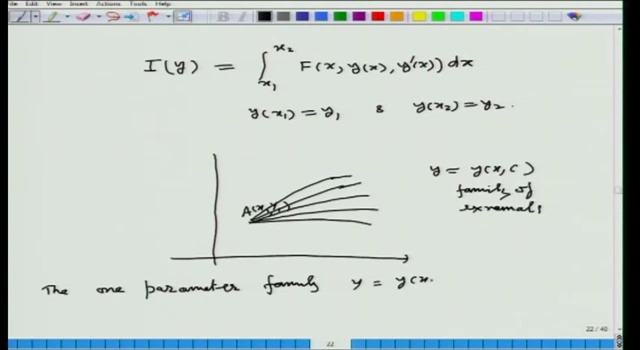 Edit View Insert Actions Tools Help
I(y) = ∫_{x₁}^{x₂} F(x, y(x), y'(x)) dx
y(x₁) = y₁ & y(x₂) = y₂.
y = y(x, c)
family of
exremals
A(x₁, y₁)
The one parameter family y = y(x.
22 / 40
22